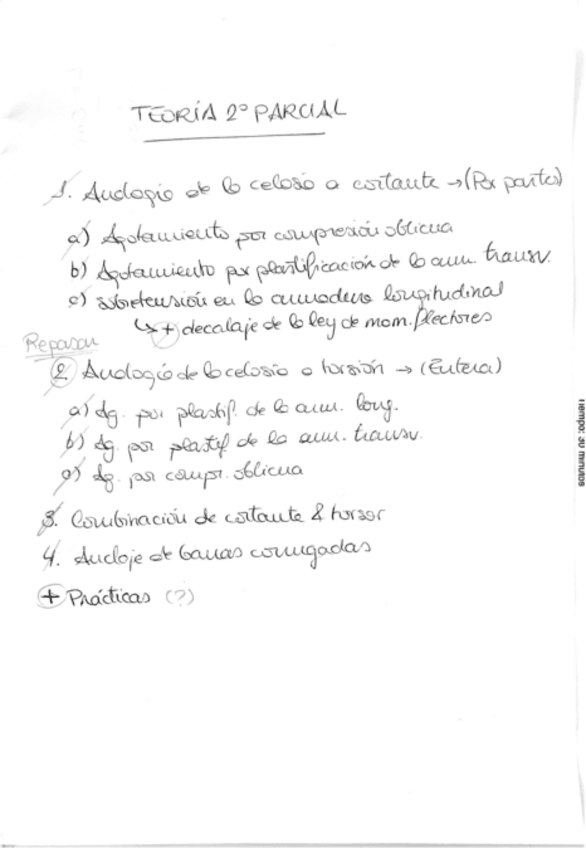 TEORÍA 2º PARCIAL
1. Analogía de la celosía a cortante → (Por partes)
a) Agotamiento por compresión oblicua
b) Agotamiento por plastificación de la arm. transv.
c) sobretensión en la armadura longitudinal
↳ + decalaje de la ley de mom. flectores
Repasar
2. Analogía de la celosía a torsión → (Entera)
a) Ag. por plastif. de la arm. long.
b) Ag. por plastif. de la arm. transv.
c) Ag. por compr. oblicua
3. Combinación de cortante & torsor
4. Anclaje de barras corrugadas
+ Prácticas (?)
Tiempo: 30 minutos